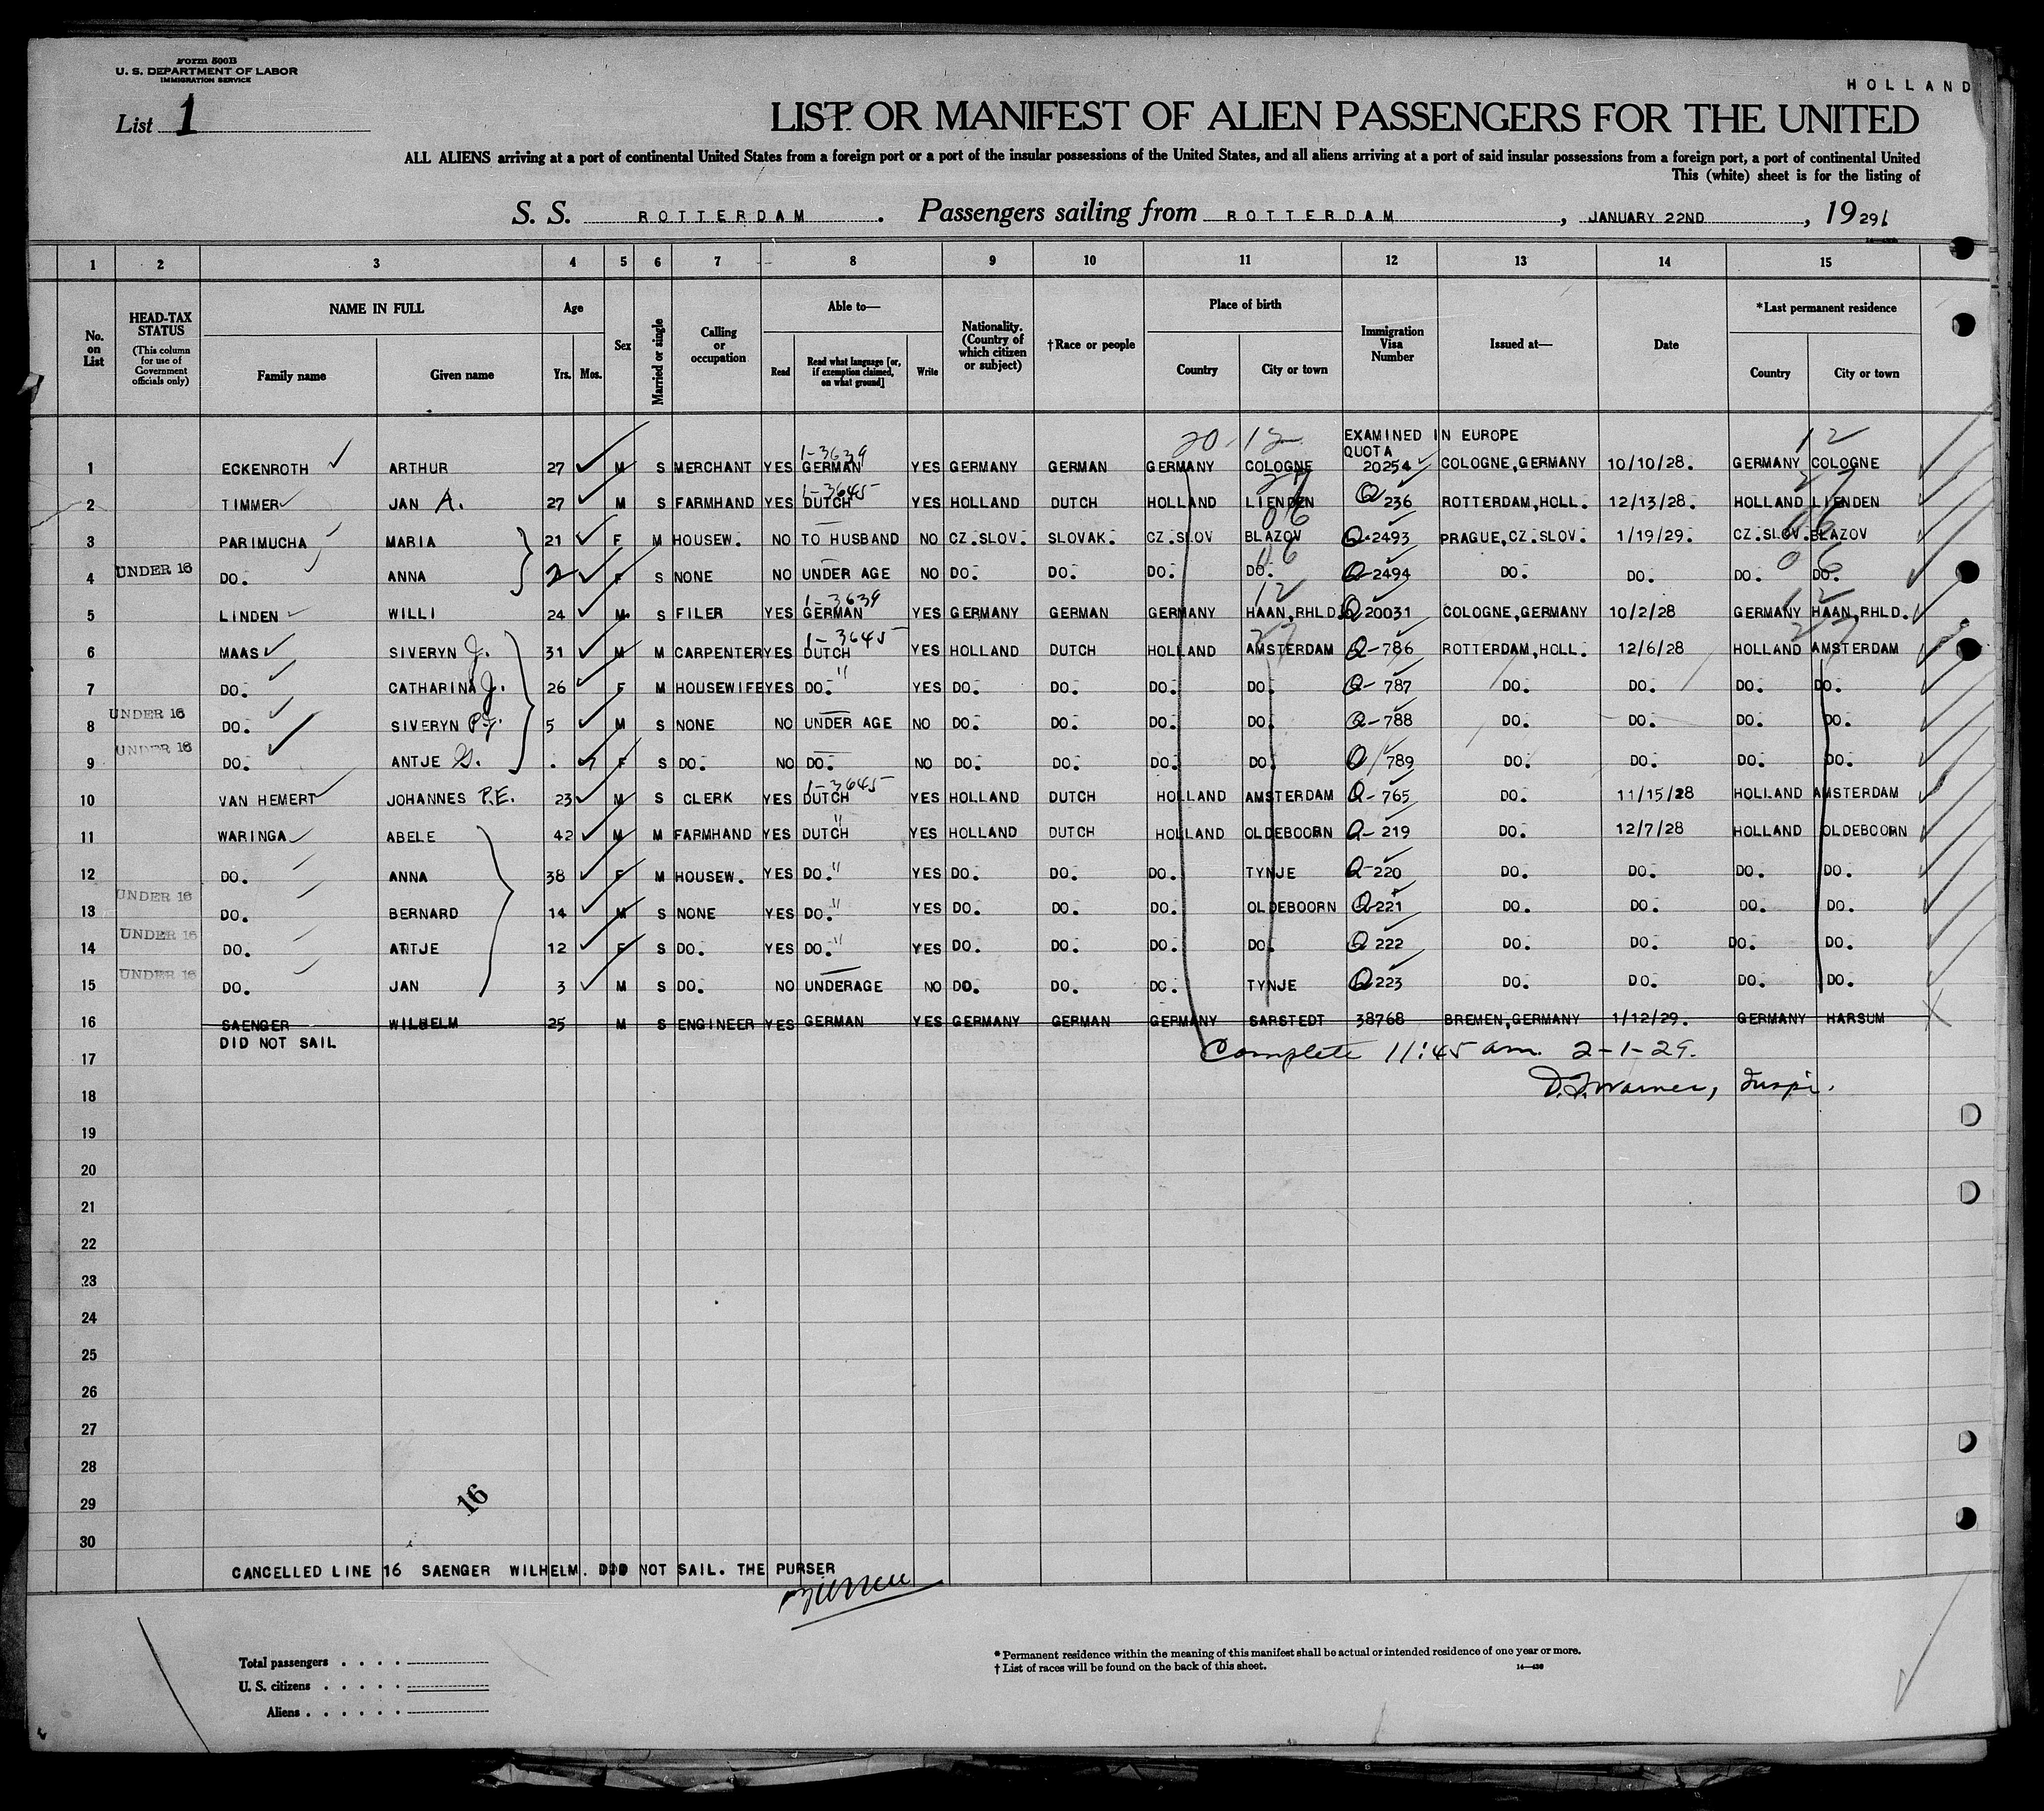 Form 500B
U. S. DEPARTMENT OF LABOR
IMMIGRATION SERVICE
HOLLAND
List 1
LIST OR MANIFEST OF ALIEN PASSENGERS FOR THE UNITED
ALL ALIENS arriving at a port of continental United States from a foreign port or a port of the insular possessions of the United States, and all aliens arriving at a port of said insular possessions from a foreign port, a port of continental United
This (white) sheet is for the listing of
S. S. ROTTERDAM . Passengers sailing from ROTTERDAM , JANUARY 22ND , 1929
1 2 3 4 5 6 7 8 9 10 11 12 13 14 15
No. on List
HEAD-TAX STATUS (This column for use of Government officials only)
NAME IN FULL Family name Given name
Age Yrs. Mos.
Sex
Married or single
Calling or occupation
Able to— Read Read what language [or, if exemption claimed, on what ground] Write
Nationality. (Country of which citizen or subject)
†Race or people
Place of birth Country City or town
Immigration Visa Number
Issued at—
Date
*Last permanent residence Country City or town
20-12 EXAMINED IN EUROPE 12
1-3639 QUOTA
1 ECKENROTH ARTHUR 27 M S MERCHANT YES GERMAN YES GERMANY GERMAN GERMANY COLOGNE 20254 COLOGNE,GERMANY 10/10/28. GERMANY COLOGNE
1-3645 27 27
2 TIMMER JAN A. 27 M S FARMHAND YES DUTCH YES HOLLAND DUTCH HOLLAND LIENDEN Q 236 ROTTERDAM,HOLL. 12/13/28. HOLLAND LIENDEN
06 06
3 PARIMUCHA MARIA 21 F M HOUSEW. NO TO HUSBAND NO CZ.SLOV. SLOVAK. CZ.SLOV BLAZOV Q-2493 PRAGUE,CZ.SLOV. 1/19/29. CZ.SLOV. BLAZOV
06 06
4 UNDER 16 DO. ANNA 2 F S NONE NO UNDER AGE NO DO. DO. DO. DO. Q-2494 DO. DO. DO. DO.
1-3639 12 12
5 LINDEN WILLI 24 M S FILER YES GERMAN YES GERMANY GERMAN GERMANY HAAN,RHLD. Q 20031 COLOGNE,GERMANY 10/2/28 GERMANY HAAN,RHLD.
1-3645 27 27
6 MAAS SIVERYN J. 31 M M CARPENTER YES DUTCH YES HOLLAND DUTCH HOLLAND AMSTERDAM Q-786 ROTTERDAM,HOLL. 12/6/28 HOLLAND AMSTERDAM
7 DO. CATHARINA J. 26 F M HOUSEWIFE YES DO. " YES DO. DO. DO. DO. Q-787 DO. DO. DO. DO.
8 UNDER 16 DO. SIVERYN P.J. 5 M S NONE NO UNDER AGE NO DO. DO. DO. DO. Q-788 DO. DO. DO. DO.
9 UNDER 16 DO. ANTJE G. . 7 F S DO. NO DO. NO DO. DO. DO. DO. Q 789 DO. DO. DO. DO.
1-3645
10 VAN HEMERT JOHANNES P.E. 23 M S CLERK YES DUTCH YES HOLLAND DUTCH HOLLAND AMSTERDAM Q-765 DO. 11/15/28 HOLLAND AMSTERDAM
11 WARINGA ABELE 42 M M FARMHAND YES DUTCH " YES HOLLAND DUTCH HOLLAND OLDEBOORN Q-219 DO. 12/7/28 HOLLAND OLDEBOORN
12 DO. ANNA 38 F M HOUSEW. YES DO. " YES DO. DO. DO. TYNJE Q-220 DO. DO. DO. DO.
13 UNDER 16 DO. BERNARD 14 M S NONE YES DO. " YES DO. DO. DO. OLDEBOORN Q-221 DO. DO. DO. DO.
14 UNDER 16 DO. ANTJE 12 F S DO. YES DO. " YES DO. DO. DO. DO. Q 222 DO. DO. DO. DO.
15 UNDER 16 DO. JAN 3 M S DO. NO UNDERAGE NO DO. DO. DO. TYNJE Q 223 DO. DO. DO. DO.
16 SAENGER WILHELM 25 M S ENGINEER YES GERMAN YES GERMANY GERMAN GERMANY SARSTEDT 38768 BREMEN,GERMANY 1/12/29. GERMANY HARSUM X
DID NOT SAIL
17 Complete 11:45 am. 2-1-29.
18 D.F. Warner, Inspr.
19
20
21
22
23
24
25
26
27
28
29
16
30
CANCELLED LINE 16 SAENGER WILHELM. DID NOT SAIL. THE PURSER
Total passengers . . . .
U. S. citizens . . . . .
Aliens . . . . . .
* Permanent residence within the meaning of this manifest shall be actual or intended residence of one year or more.
† List of races will be found on the back of this sheet. 14—430